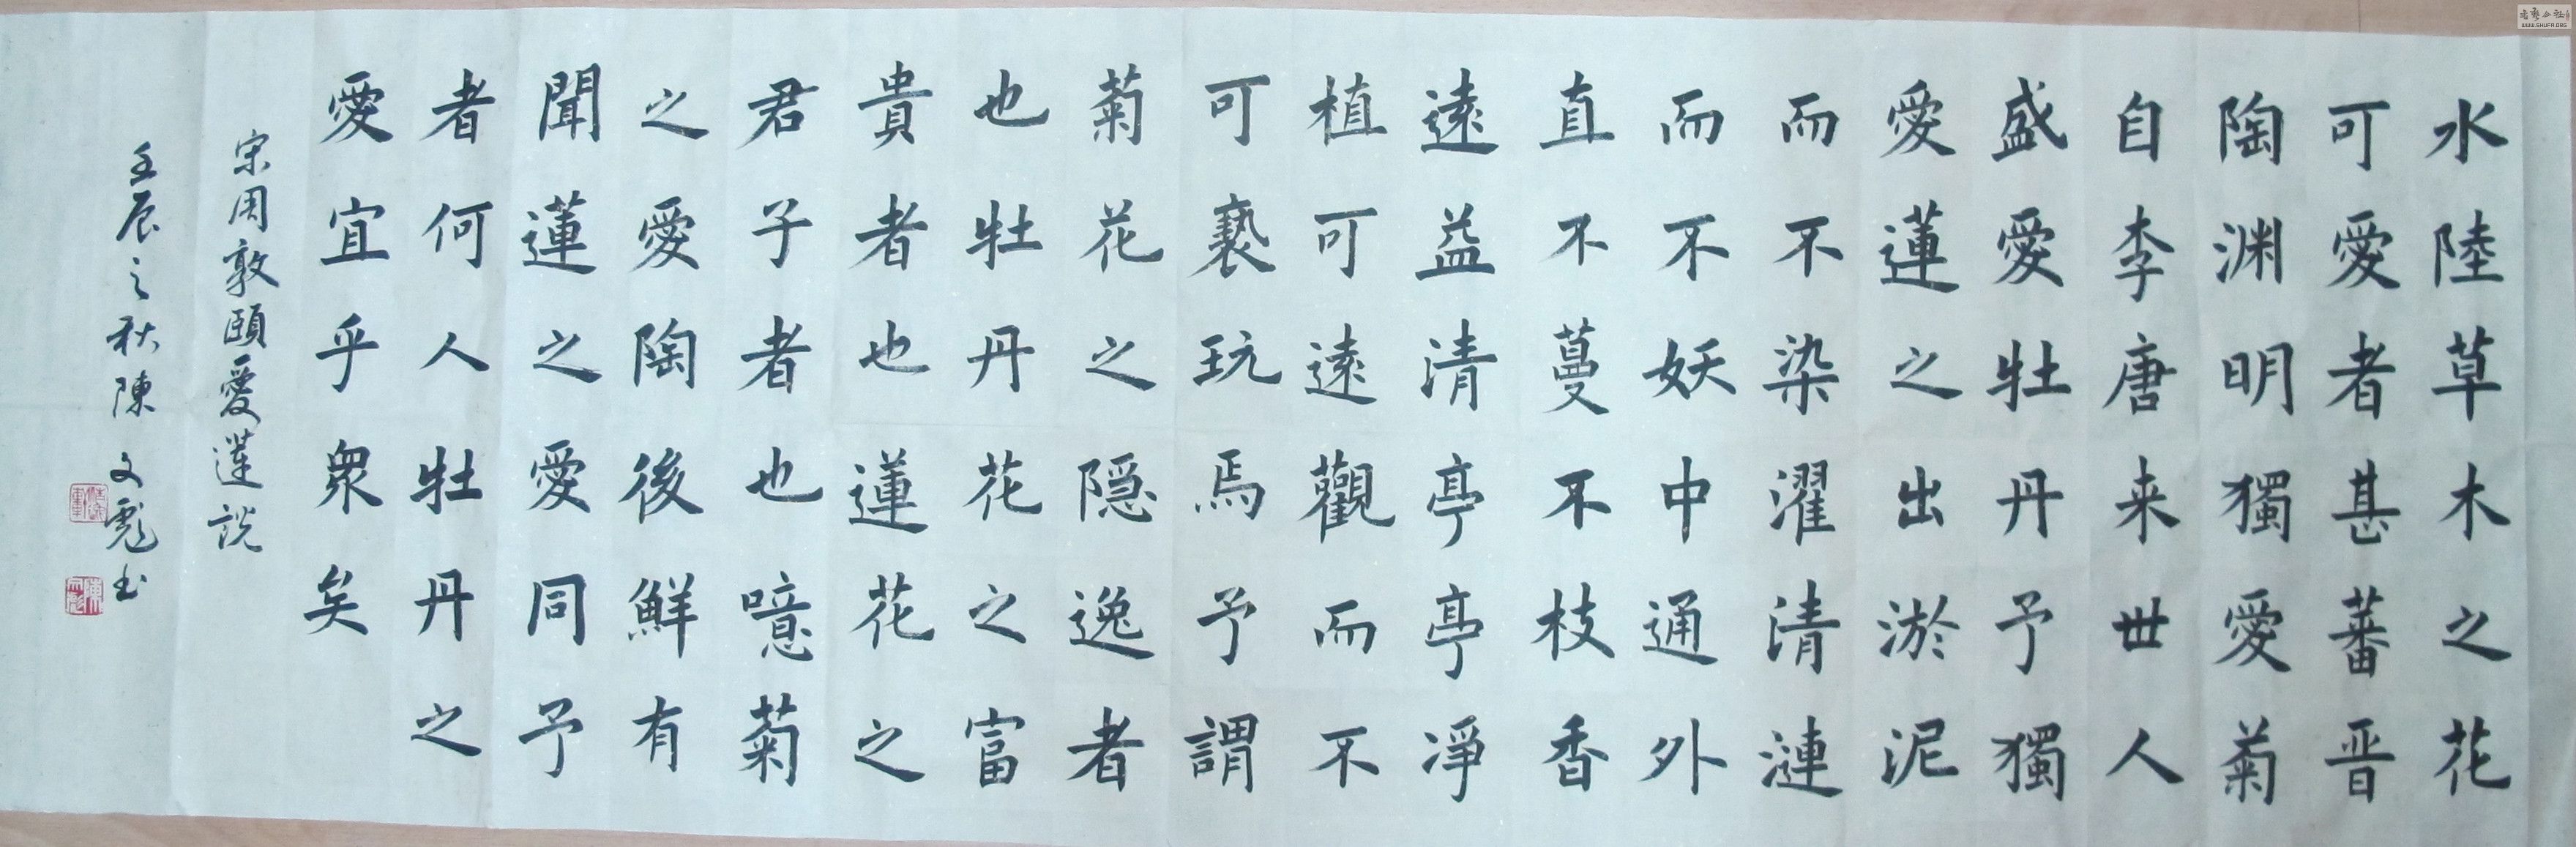 水陸草木之花
可愛者甚蕃晋
陶渊明獨愛菊
自李唐来世人
盛愛牡丹予獨
愛蓮之出淤泥
而不染濯清漣
而不妖中通外
直不蔓不枝香
遠益清亭亭淨
植可遠觀而不
可褻玩焉予謂
菊花之隠逸者
也牡丹花之富
貴者也蓮花之
君子者也噫菊
之愛陶後鮮有
聞蓮之愛同予
者何人牡丹之
愛宜乎衆矣
宋周敦頤愛蓮説
壬辰之秋陳文彪书
WWW.SHUFA.ORG